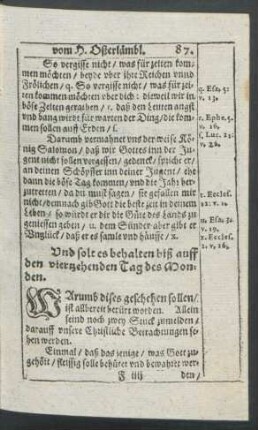 vom H. Osterlämbl. 87.
So vergisse nicht / was für zeiten kom-
men möchten / beyde vber ihre Reichen vnnd
Frölichen / q. So vergisse nicht / was für zei-
ten kommen möchten vber dich: dieweil wir in
böse Zeiten gerathen / r. daß den Leuten angst
vnd bang wirdt für warten der Ding / die kom-
men sollen auff Erden / s.
Darumb vermahnet vns der weise Kö-
nig Salomon / daß wir Gottes inn der Ju-
gent nicht sollen vergessen / gedenck / spricht er /
an deinen Schöpffer inn deiner Jugent / ehe
dann die böse Tag kommen / vnd die Jahr her-
zutretten / da du must sagen / sie gefallen mir
nicht / demnach gib Gott die beste zeit in deinem
Leben / so würdt er dir die Güt des Lands zu
geniessen geben / u. dem Sünder aber gibt er
Vnglück / daß er es samle vnd häuffe / x.
Vnd solt es behalten biß auff
den vierzehenden Tag des Mon-
den.
WArumb dises geschehen sollen /
ist allbereit berürt worden. Allein
seind noch zwey Stuck zumelden /
darauff vnsere Christliche Betrachtungen se-
hen werden.
Einmal / daß das jenige / was Gott zu-
gehört / fleissig solle behütet vnd bewahrt wer-
F iiij den /
q. Esa. 5:
v. 13.
r. Ephe. 5.
v. 16.
s. Luc. 21:
v. 26.
t. Eccles.
12: v. 1.
u. Esa. 1:
v. 19.
x. Eccles.
2. v. 26.